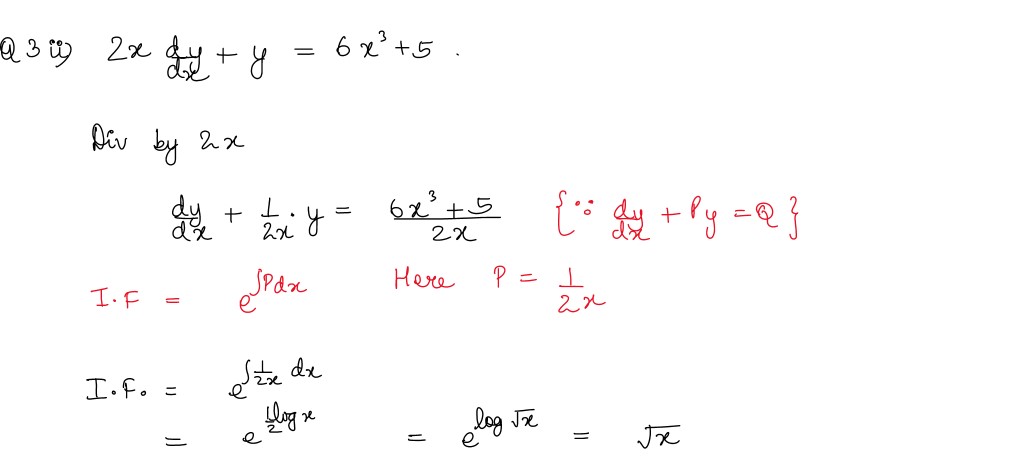 Q 3 ii) 2x dy/dx + y = 6x³ + 5 .
Div by 2x
dy/dx + 1/2x . y = 6x³ + 5 / 2x {∵ dy/dx + Py = Q}
I.F = e^∫Pdx Here P = 1/2x
I.F. = e^∫1/2x dx
= e^1/2 log x = e^log √x = √x